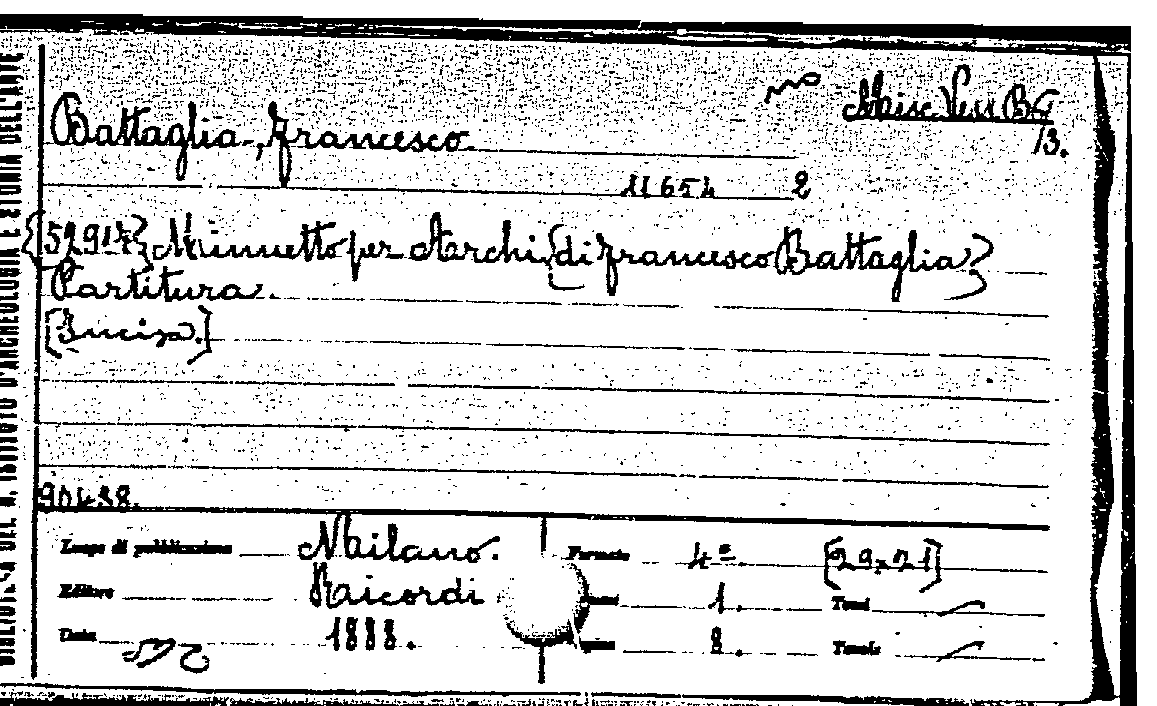 Misc. Ven B G
13.
Battaglia, Francesco
11654 2
{52914} Minuetto per Archi {di Francesco Battaglia}
Partitura.
[Incisa.]
90438.
Luogo di pubblicazione Milano. Formato 4º. [29×21]
Editore Ricordi 1. Tomi
Data 1888. 8. Tavole
BIBLIOTECA DEL R. ISTITUTO D'ARCHEOLOGIA E STORIA DELL'ARTE